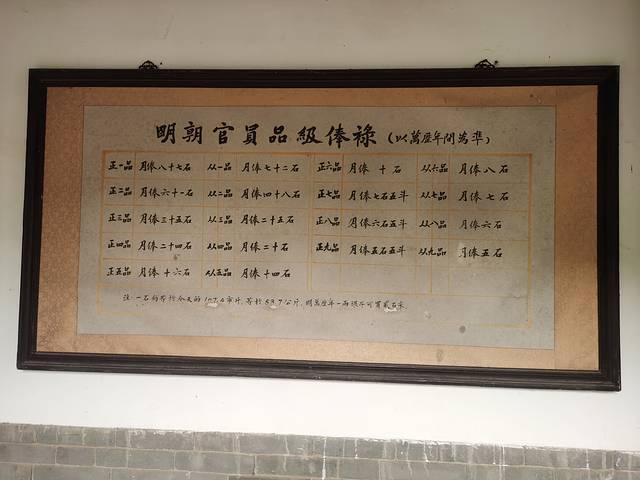 明朝官員品級俸祿(以萬歷年間為準)
正一品 月俸八十七石 从一品 月俸七十二石 正六品 月俸 十 石 从六品 月俸 八 石
正二品 月俸六十一石 从二品 月俸四十八石 正七品 月俸七石五斗 从七品 月俸 七 石
正三品 月俸三十五石 从三品 月俸二十五石 正八品 月俸六石五斗 从八品 月俸 六 石
正四品 月俸二十四石 从四品 月俸二十石 正九品 月俸五石五斗 从九品 月俸五石
正五品 月俸 十六石 从五品 月俸 十四石
注:一石約等於今天的107.4市斤,等於53.7公斤,明萬歷年一兩銀子可買貳石米.